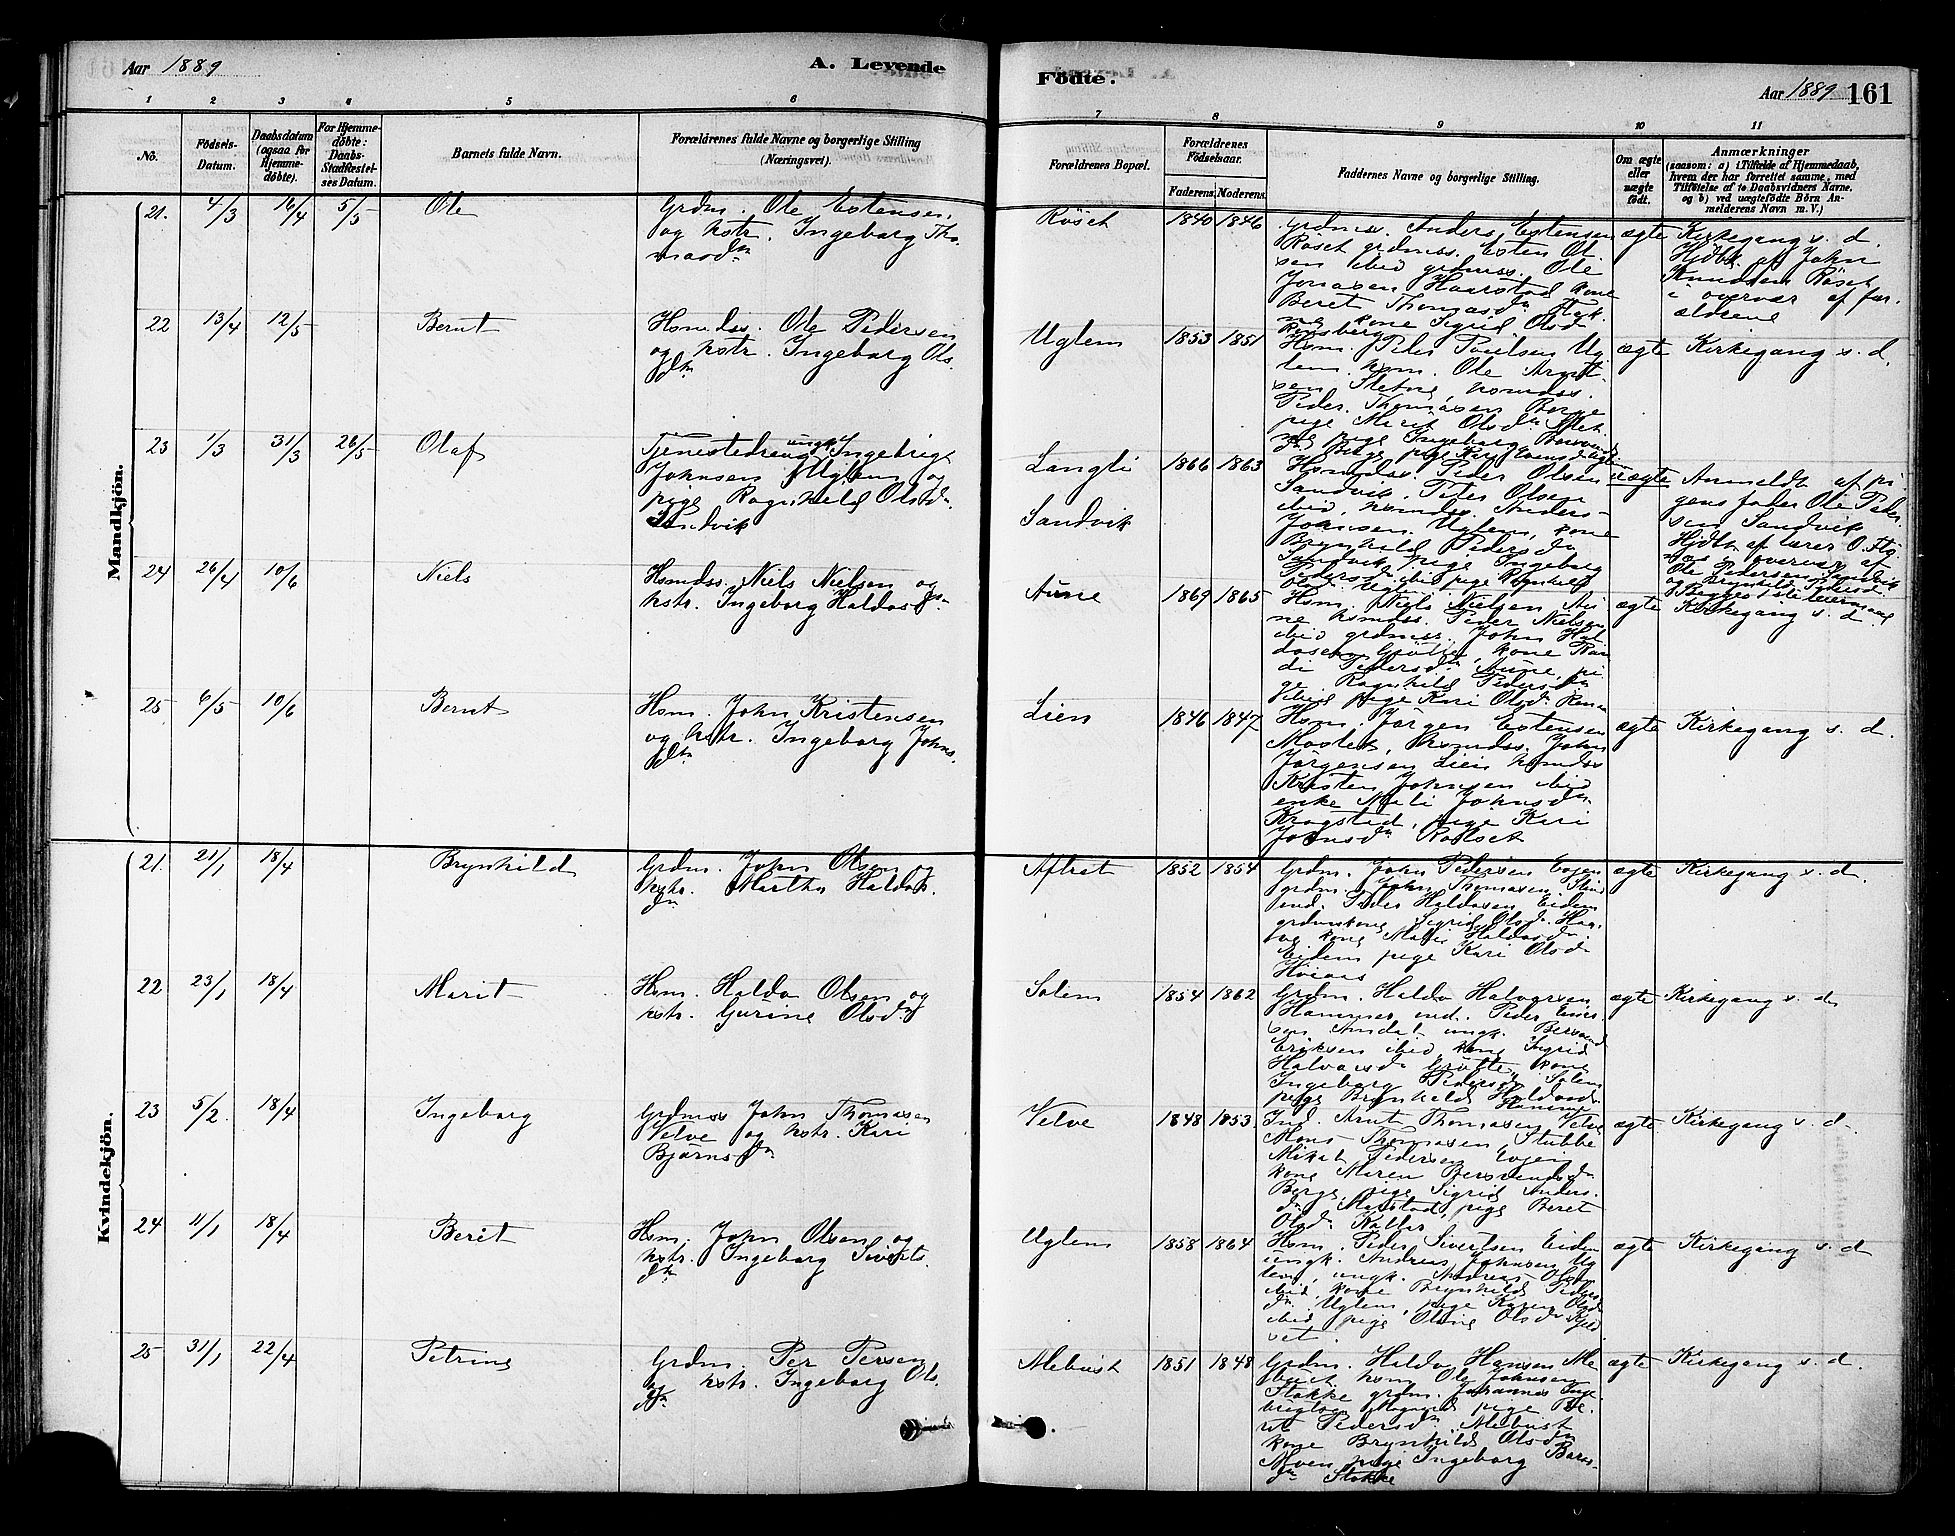 Aar 1889
A. Levende
Födte.
Aar 1889
161
1 2 3 4 5 6 7 8 9 10 11
No.
Födsels-
Datum.
Daabsdatum
(ogsaa for
Hjemme-
döbte).
For Hjemme-
döbte:
Daabs-
Stadfæstel-
ses Datum.
Barnets fulde Navn.
Forældrenes fulde Navne og borgerlige Stilling
(Næringsvei).
Forældrenes Bopæl.
Forældrenes
Födselsaar.
Faderens. Moderens.
Faddernes Navne og borgerlige Stilling.
Om ægte
eller
uægte
födt.
Anmærkninger
(saasom: a) i Tilfælde af Hjemmedaab,
hvem der har forrettet samme, med
Tilföielse af to Daabsvidners Navne,
og b) ved uægtefödte Börn An-
melderens Navn m. V.)
Mandkjön.
21. 4/3 16/4 5/5 Ole
Grdm. Ole Estensen
og hstr. Ingeborg Tho-
masdn
Röset 1840 1846
grdmss. Anders Estensen
Röset grdmss. Esten Ol-
sen ibid grdmss. Ole
Jonasen Haarstad kone
Beret Thomasdn
kone Sigrid Olsdn
ægte
Kirkegang s. d.
Hjdbt. af John
Knudsen Röset
i overvær af for-
ældrene
22 13/4 12/5 Bernt
Hsmdss. Ole Pedersen
og hstr. Ingeborg Ols-
dtn
Uglem 1853 1851
Hsm. Peder Poulsen Ug-
lem, hsm. Ole Arnt-
sen Sletne, hsmdss.
Peder Thomasen Berge
pige Marit Olsdn
pige Ingeborg
Berge, pige Kari
ægte
Kirkegang s. d.
23 1/3 31/3 26/5 Olaf
Tjenestedreng ungk. Ingebrigt
Johnsen Uglem og
pige Ragnhild Olsdn
Sandvik
Langli
Sandvik
1866 1863
Hsmdss. Peder Olsen
Sandvik, Peter Olsen
ibid, hsmdss. Anders
Johnsen Uglem, kone
Brynhild Pedersdn
Sandvik, pige Ingeborg
Pedersdn ibid, pige Ragnhild
uægte
Anmeldt af pi-
gens fader Ole Peder-
sen Sandvik
Hjdbt. af lærer O.
i overvær af
Ole Pedersen Sandvik
og Brynhild
Begges 1ste leiermaal
24 26/4 10/6 Niels
Hsmdss. Niels Nielsen og
hstr. Ingeborg Haldosdn
Aune 1869 1865
Hsm. Niels Nielsen Au-
ne hsmdss. Peder Nielsen
ibid grdmss. John Hal-
dosen Gröttes, kone Ran-
di Pedersdn Aune, pi-
ge Ragnhild Pedersdn
ibid pige Kari Olsdn
ægte
Kirkegang s. d.
25 6/5 10/6 Bernt
Hsm. John Kristensen
og hstr. Ingeborg Johns-
dtn
Lien 1846 1847
Hsm. Jörgen Estensen
Moslet, hsmdss. John
Jörgensen Lien hsmdss
Kristen Johnsen ibid
enke Mali Johnsdn
Kragstad, pige Kari
Johnsdn Rolset
ægte
Kirkegang s. d.
Kvindekjön.
21. 21/1 18/4 Brynhild
Grdm. John Olsen og
hstr. Martha Haldos-
dn
Aftret 1852 1854
Grdm. John Pedersen Evjen
grdm. John Thomasen
ind. Peder Haldosen Eidem
grdmskone Sigrid Olsdn
kone Mali Haldosdn
Eidem pige Kari Olsdn
Höiaas
ægte
Kirkegang s. d.
22 23/1 18/4 Marit
Hsm. Haldo Olsen og
hstr. Gurine Olsdn
Solem 1854 1862
Grdm. Haldo Halvorsen
Hammer ind. Peder
sen Amdal ungk. Bersvend
Eriksen ibid, kone Ingrid
Halvorsdn Gröttes, kone
Ingeborg Pedersdn Solem
pige Brynhild Haldosdn
Hammer
ægte
Kirkegang s. d.
23 5/2 18/4 Ingeborg
Grdmss John Thomasen
Velve og hstr. Kari
Björnsdn
Velve 1848 1853
Ind. Arnt Thomasen Velve
Mons Thomasen Stubbe
Mikal Pedersen Evjen
kone Maren Bersvendsdn
Berge, pige Sigrid Anders-
dn Marstad, pige Beret
Olsdn Kallar
ægte
Kirkegang s. d.
24 11/1 18/4 Berit
Hsm. John Olsen og
hstr. Ingeborg Siverts-
dtn
Uglem 1858 1864
Hsm. Peder Sivertsen Eidem
ungk. Andreas Johnsen Ug-
lem, ungk. Andreas Olsen
ibid, kone Brynhild Peders-
dn Uglem, pige Karen Olsdn
ibid pige Oline Olsdn Kjel-
set.
ægte
Kirkegang s. d
25 31/1 22/4 Petrine
Grdm. Per Persen
og hstr. Ingeborg Ols-
dtn
Mebust 1851 1848
Grdm. Haldo Hansen Me-
bust hsm Ole Johnsen
Stokke grdm. Johannes Inge-
brigtsen pige Be-
rit Pedersdn Mebust
kone Brynhild Olsdn
Moen, pige Ingeborg
dn Stokke
ægte
Kirkegang s. d.